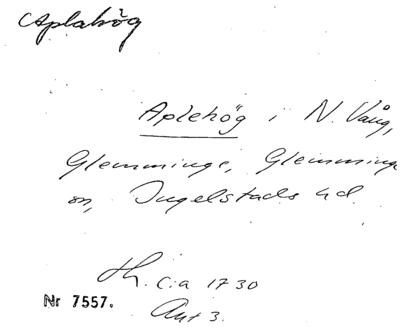 Aplahög
Aplehög i N. Vång,
Glemminge, Glemminge
sn, Ingelstads hd.
Lh. c:a 1730
Nr 7557.
Ant 3.